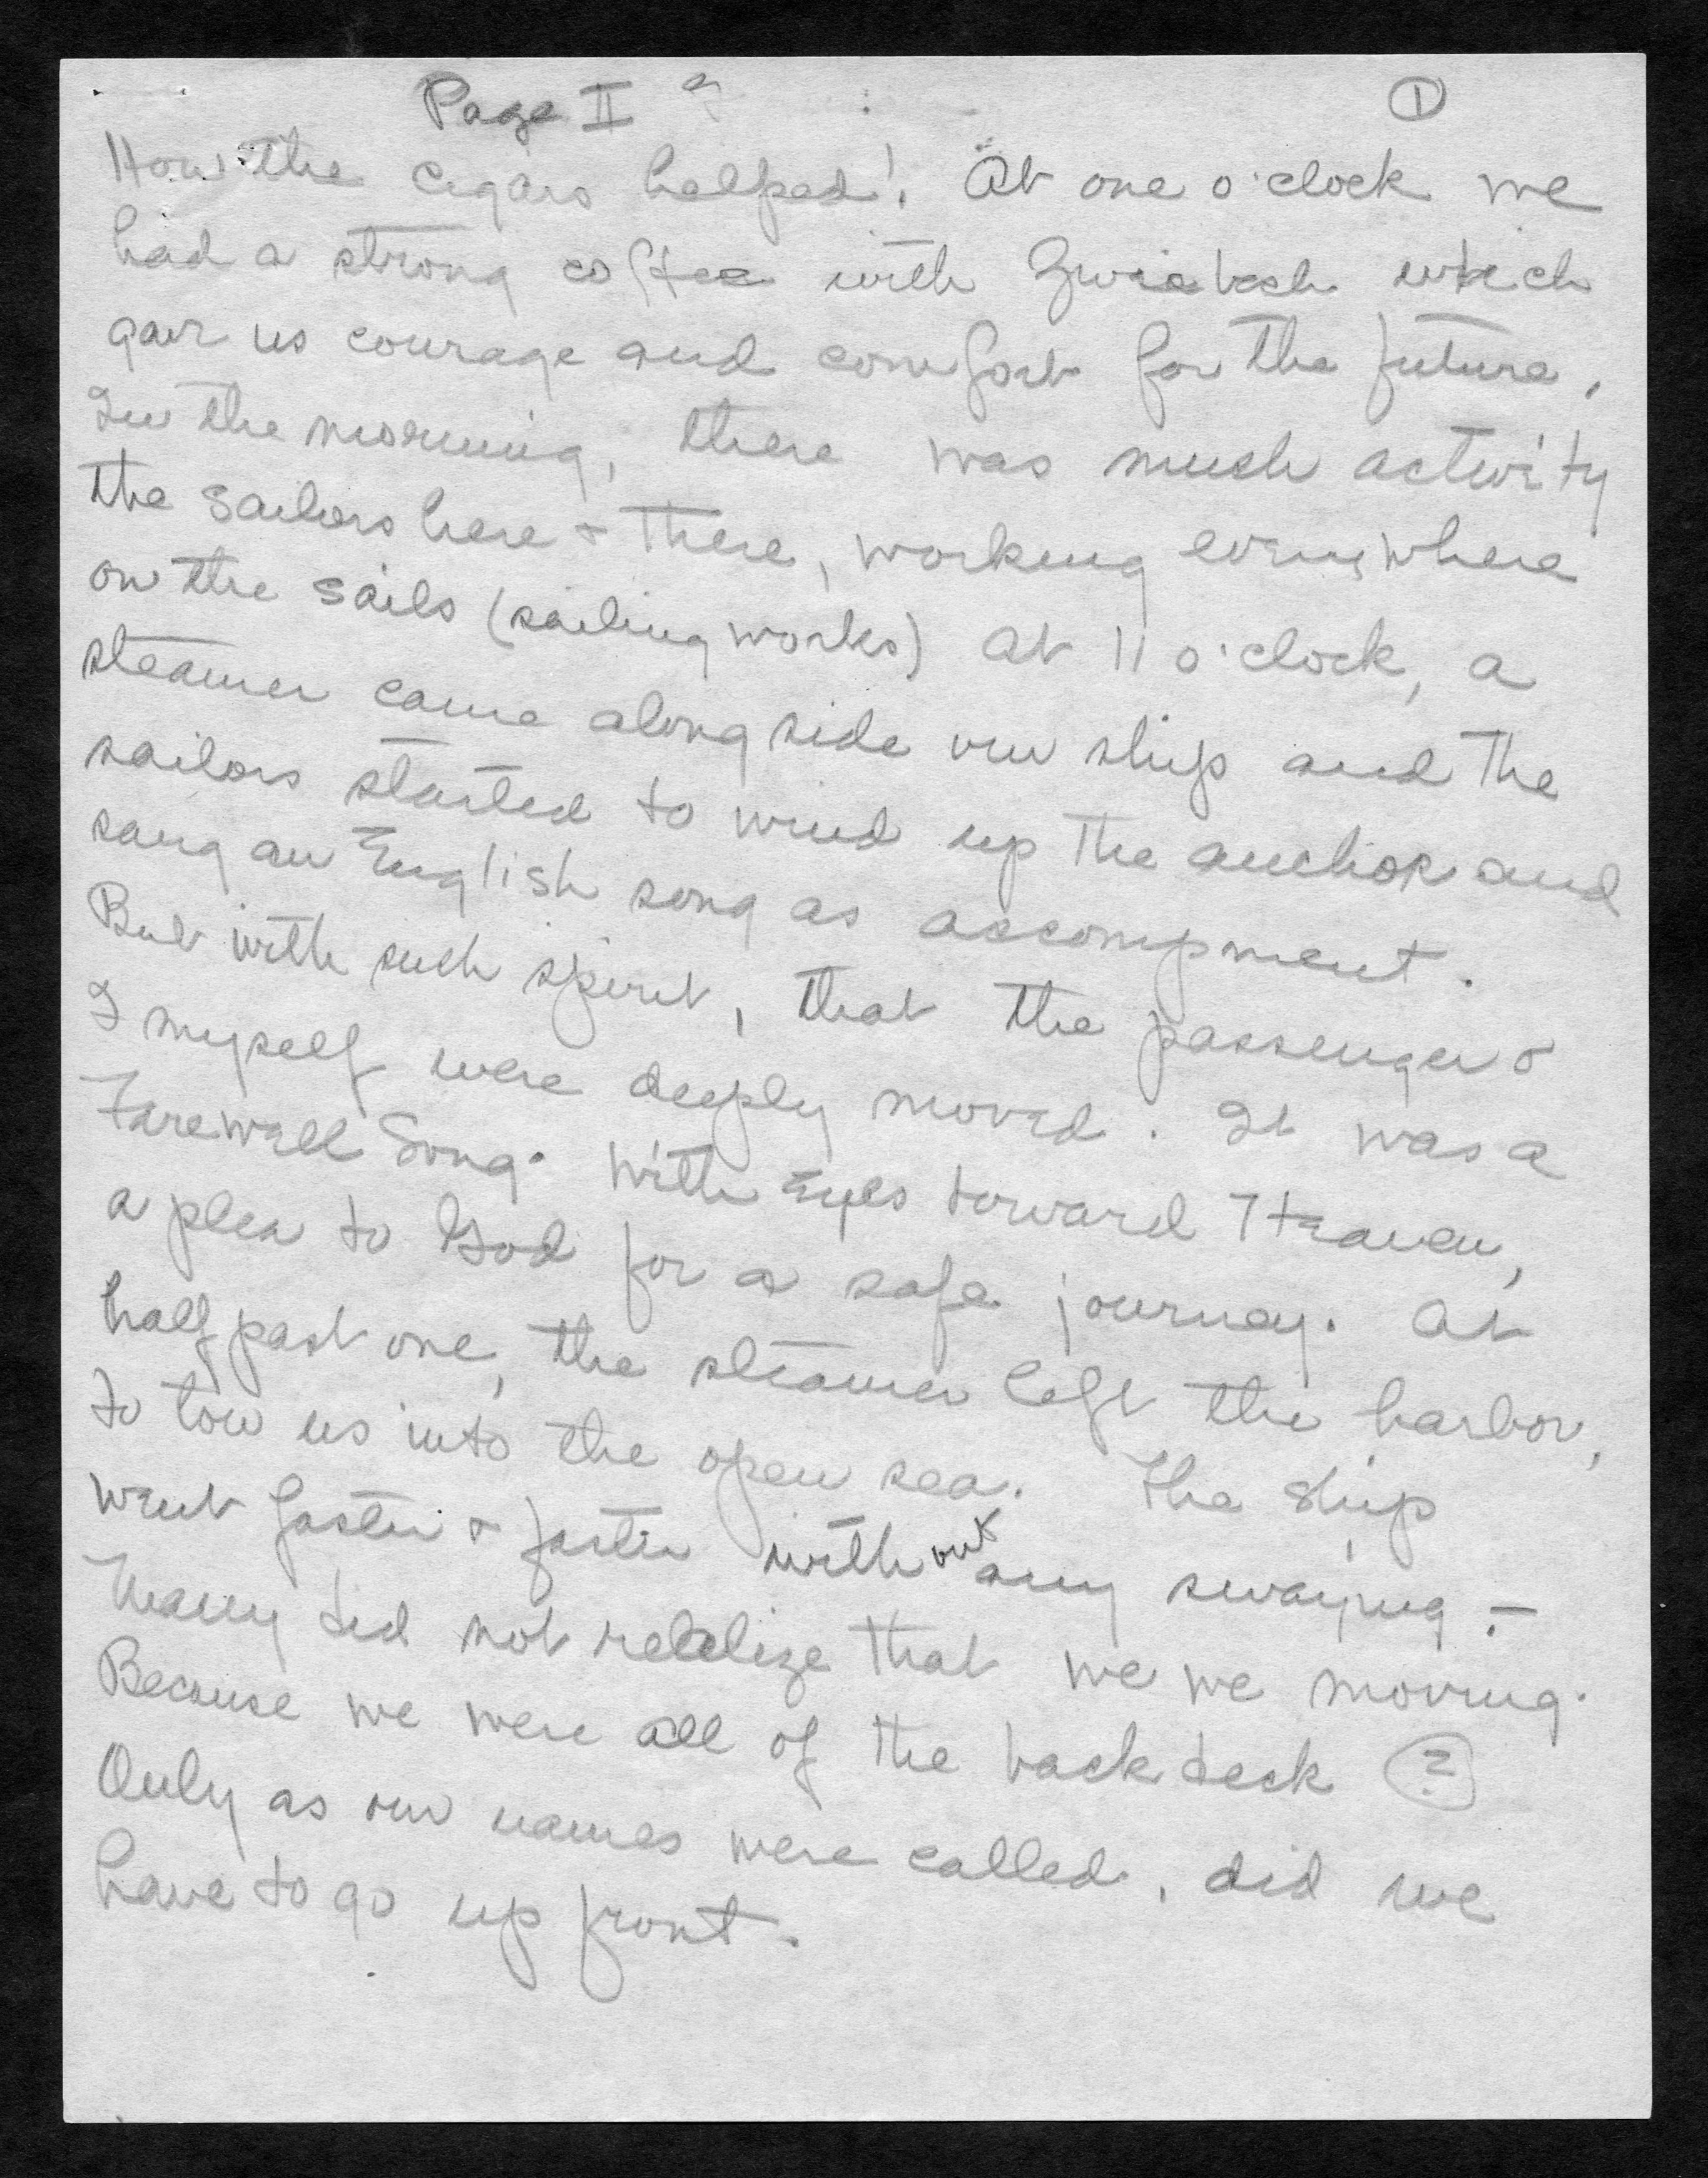 Page II a ①
How the cigars helped! At one o'clock we
had a strong coffee with Zwieback which
gave us courage and comfort for the future.
In the morning, there was much activity
the sailors here & there, working everywhere
on the sails (sailing works) At 11 o'clock, a
steamer came along side our ship and the
sailors started to wind up the anchor and
sang an English song as accompment.
But with such spirit, that the passenger &
I myself were deeply moved. It was a
Farewell Song. With Eyes toward Heaven,
a plea to God for a safe journey. At
half past one, the steamer left the harbor,
to tow us into the open sea. The ship
went faster & faster without any swaying –
Many did not realize that we we moving.
Because we were all of the back deck ?
Only as our names were called, did we
have to go up front.